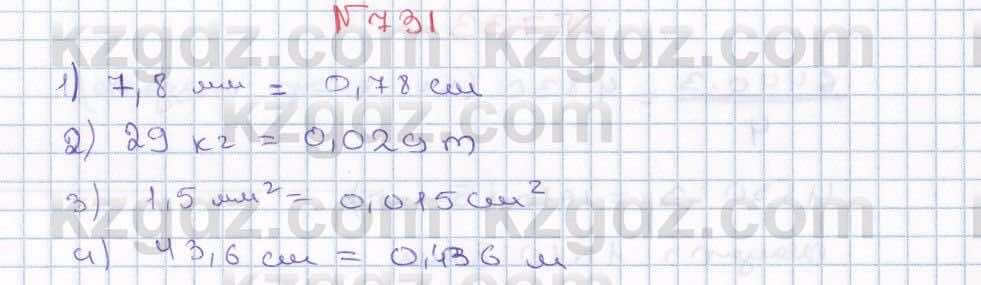 №731
1) 7,8 мм = 0,78 см
2) 29 кг = 0,029 т
3) 1,5 мм² = 0,015 см²
4) 43,6 см = 0,436 м
kzgdz.com kzgdz.com
kzgdz.com
kzgdz.com kzgdz.com
kzgdz.com